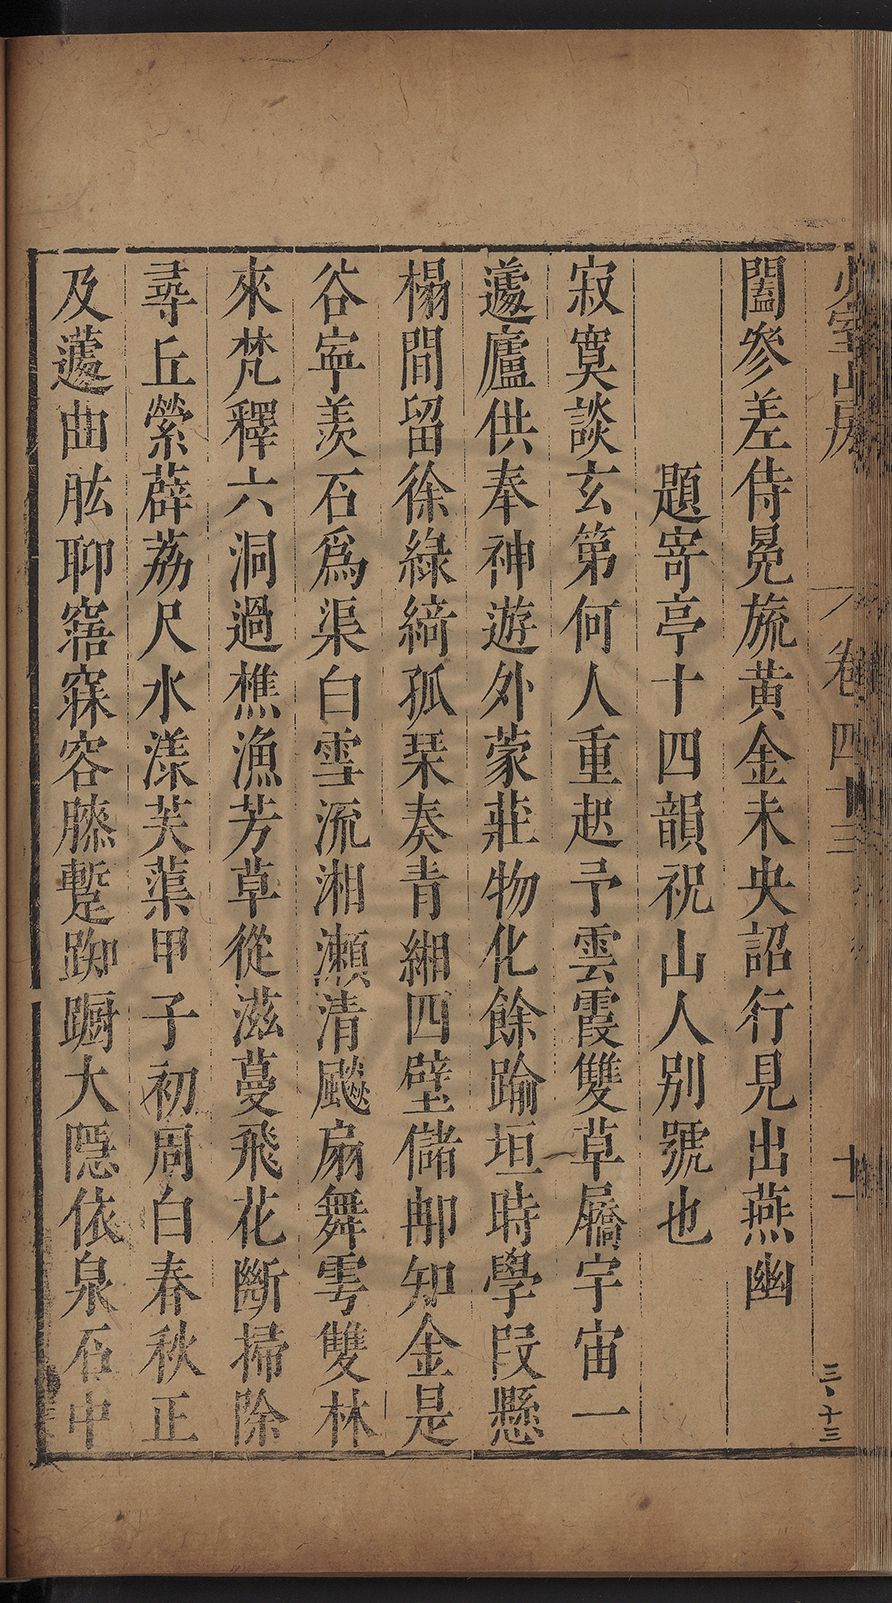 少室山房
卷四十三
十一
三、十三
闔參差侍冕旒黄金未央詔行見出燕幽
題寄亭十四韻祝山人别號也
寂寞談玄第何人重起予雲霞雙草屩宇宙一
蘧廬供奉神遊外蒙莊物化餘踰垣時學段懸
榻間留徐綠綺孤琹奏青緗四壁儲郍知金是
谷寧羨石爲渠白雪流湘瀨清飈扇舞雩雙林
來梵釋六洞過樵漁芳草從滋蔓飛花斷掃除
尋丘縈薜荔尺水漾芙蕖甲子初周白春秋正
及蘧曲肱聊寤寐容膝蹔踟蹰大隱依泉石中